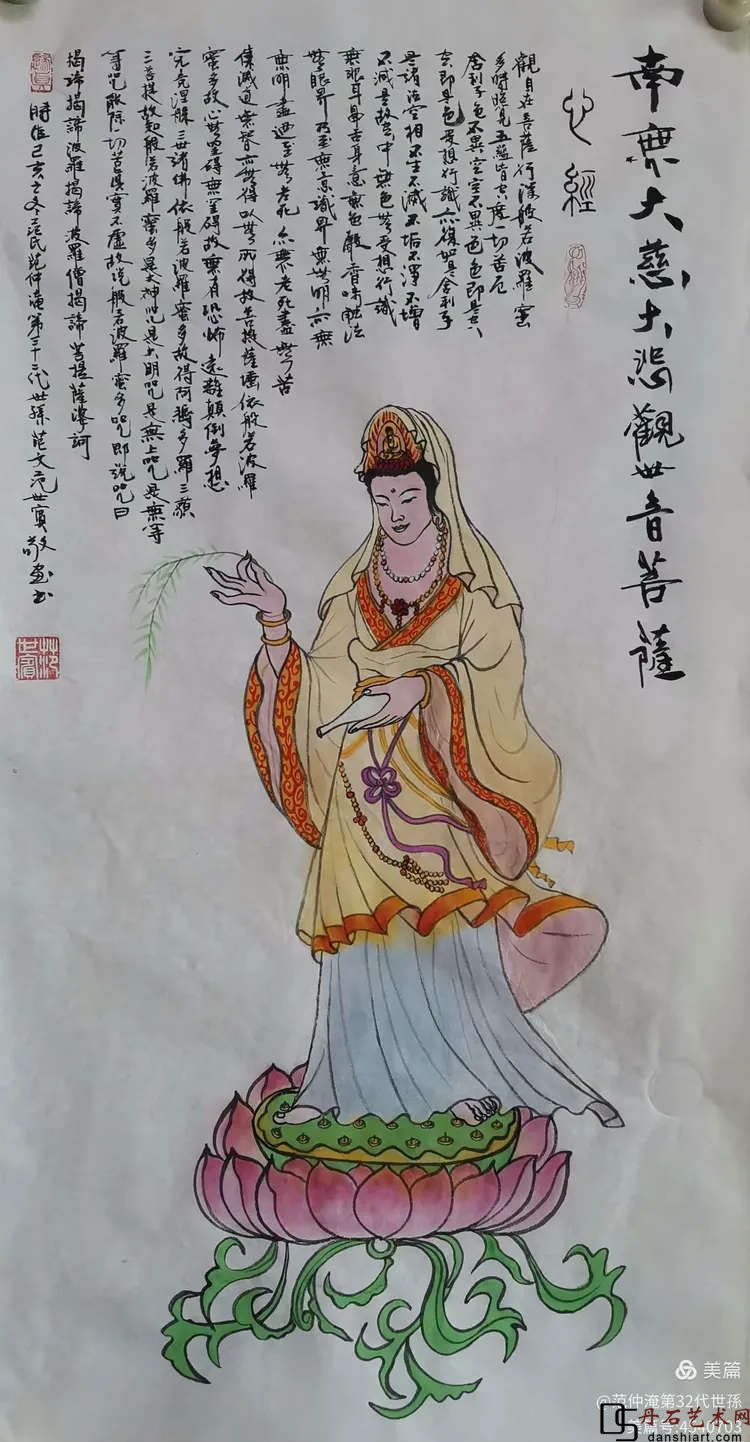 南無大慈大悲觀世音菩薩
心經
觀自在菩薩行深般若波羅蜜
多時照見五蘊皆空度一切苦厄
舍利子色不異空空不異色色即是空
空即是色受想行識亦復如是舍利子
是諸法空相不生不滅不垢不淨不增
不減是故空中無色無受想行識
無眼耳鼻舌身意無色聲香味觸法
無眼界乃至無意識界無無明亦無
無明盡乃至無老死亦無老死盡無苦
集滅道無智亦無得以無所得故菩提薩埵依般若波羅
蜜多故心無罣礙無罣礙故無有恐怖遠離顛倒夢想
究竟涅槃三世諸佛依般若波羅蜜多故得阿耨多羅三藐
三菩提故知般若波羅蜜多是大神咒是大明咒是無上咒是無等
等咒能除一切苦真實不虛故說般若波羅蜜多咒即說咒曰
揭諦揭諦波羅揭諦波羅僧揭諦菩提薩婆訶
時維己亥之冬范氏范仲淹第三十二代世孫范文范世賓敬畫書
范世賓
美篇
@范仲淹第32代世孫
美篇号:4540703
丹石艺术网
danshiart.com